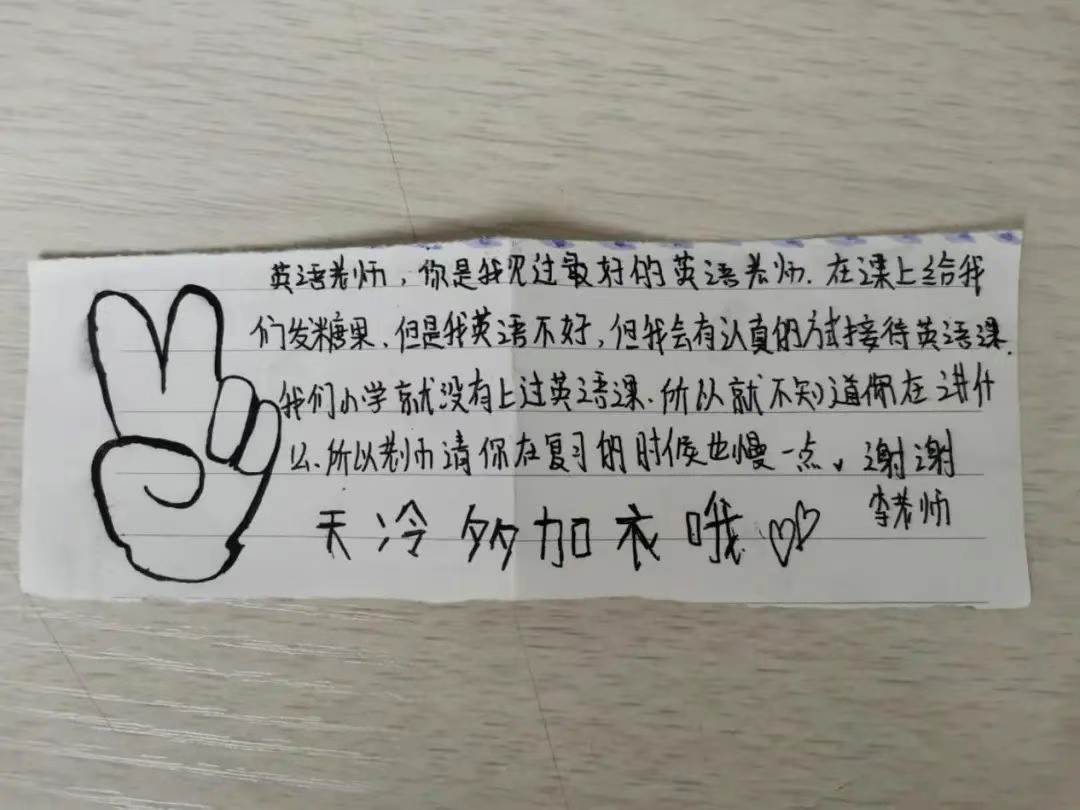 英语老师，你是我见过最好的英语老师.在课上给我
们发糖果、但是我英语不好，但我会有认真的方式接待英语课.
我们小学就没有上过英语课.所以就不知道你在讲什
么.所以老师请你在复习的时候也慢一点、谢谢
李老师
天冷多加衣哦